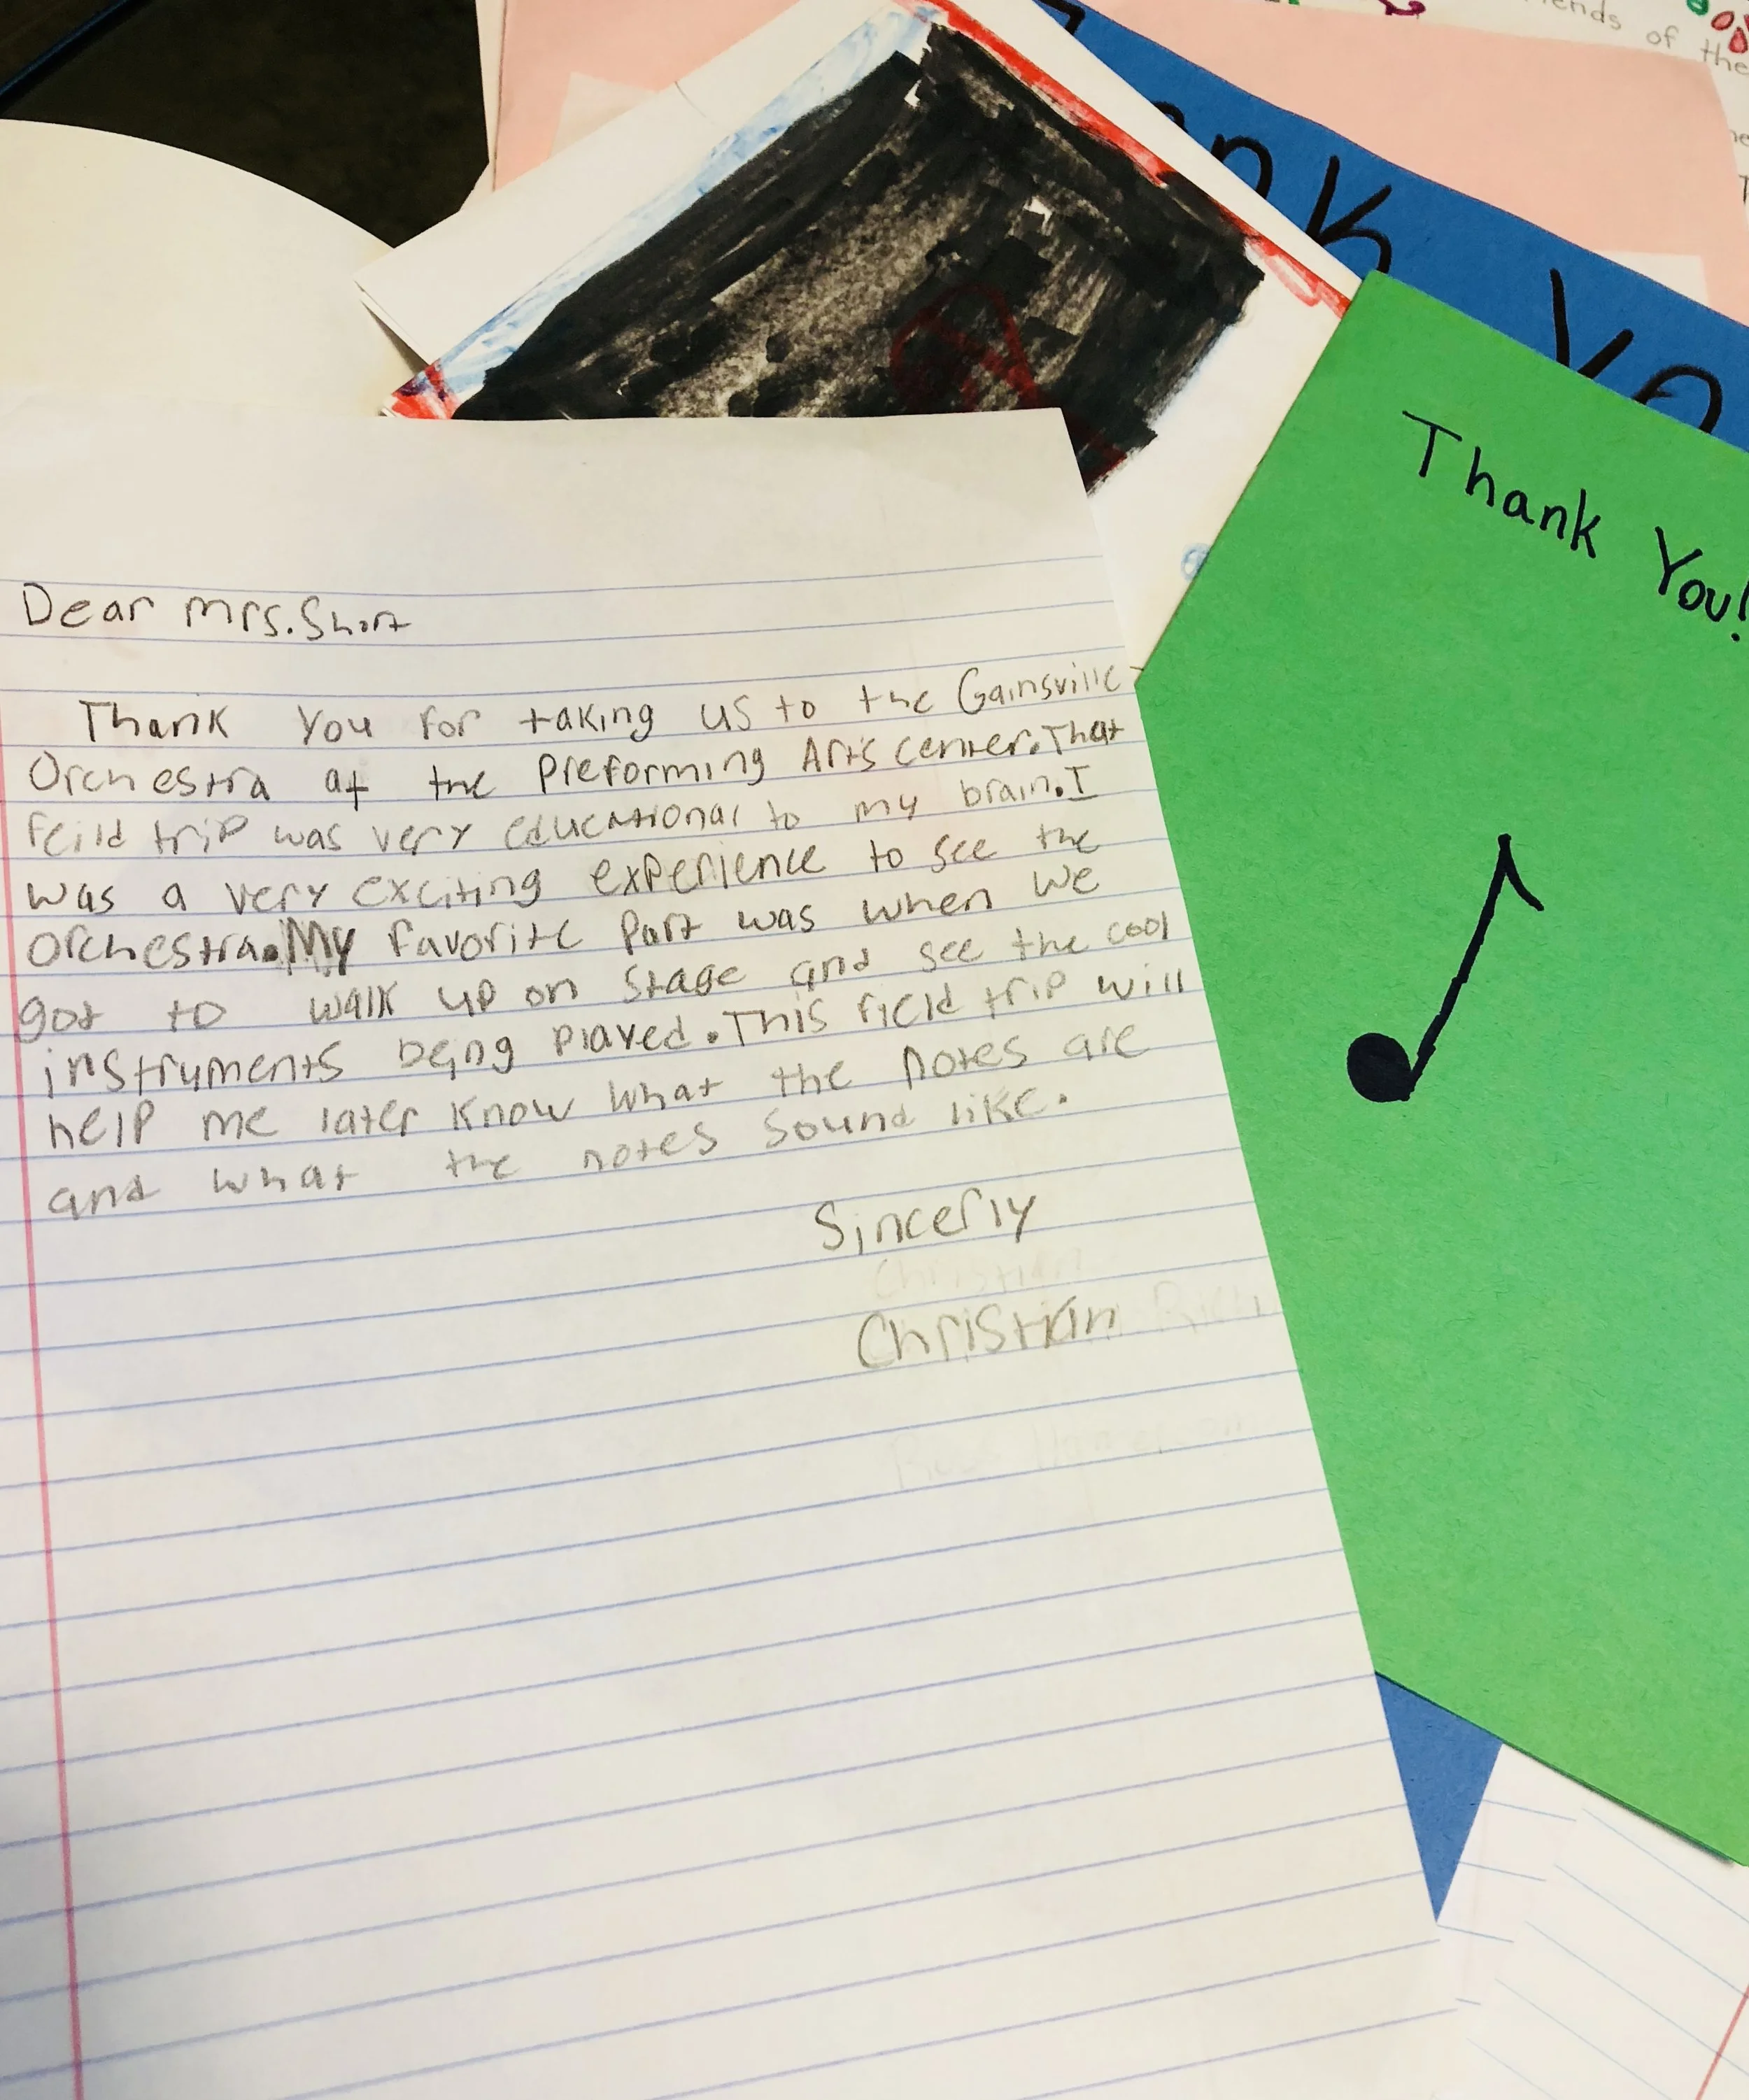 ends of the
nk Yo
Thank You!
Dear Mrs. Short
Thank You for taking us to the Gainsville
Orchestra at the Preforming Arts center. That
feild trip was very educational to my brain. I
was a very exciting experience to see the
orchestra. My favorite part was when we
got to walk up on stage and see the cool
instruments being played. This field trip will
help me later know what the notes are
and what the notes sound like.
Sincerly
Christian
Christian